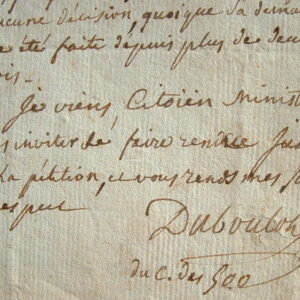 aucune décision, quoique sa dema
été faite depuis plus de deux
ois.
Je viens, Citoien Minist
inviter de faire rendre Jus
la pétition, et vous rends mes
espect
Duboulo
du C. des 500